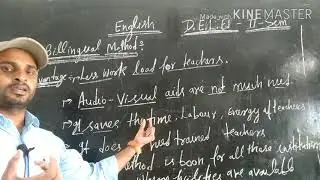 English D.El.Ed - II - Sem
Made with KINEMASTER
Billingual Method:
less work load for teachers.
Audio-Visual aids are not much need.
It saves the time, Labour, energy of teachers
It does trained teachers
is boon for all those
facilities are available